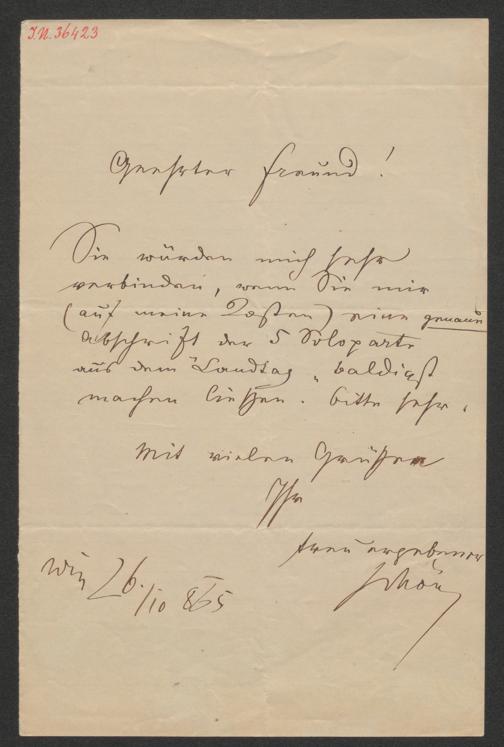 I.N. 36423
Geehrter Freund!
Sie würden mich sehr
verbinden, wenn Sie mir
(auf meine Kosten) eine genaue
Abschrift der 5 Soloparte
aus dem "Landtag" baldigst
machen ließen. Bitte sehr.
Mit vielen Grüßen
Ihr
treu ergebener
Schön
Wien 26./10 865